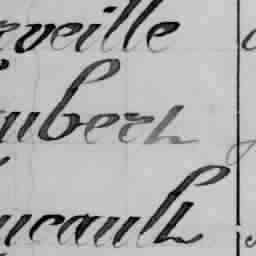 eveille
ubert
ucault